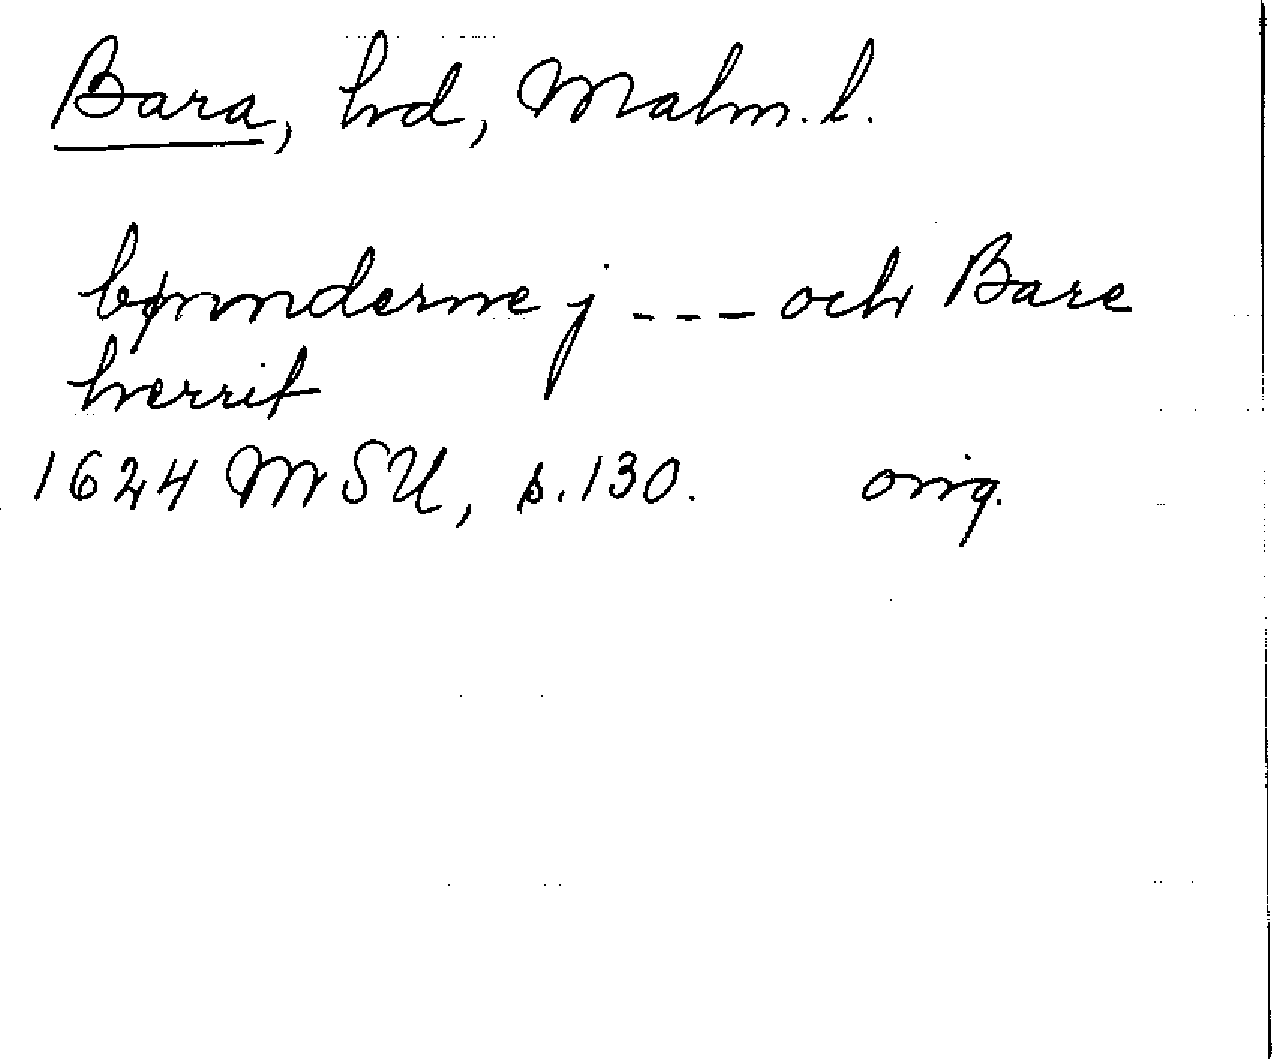 Bara, hd, Malm. l.
bønnderne j --- och Bare
herrit
1624 MSU, s. 130. orig.